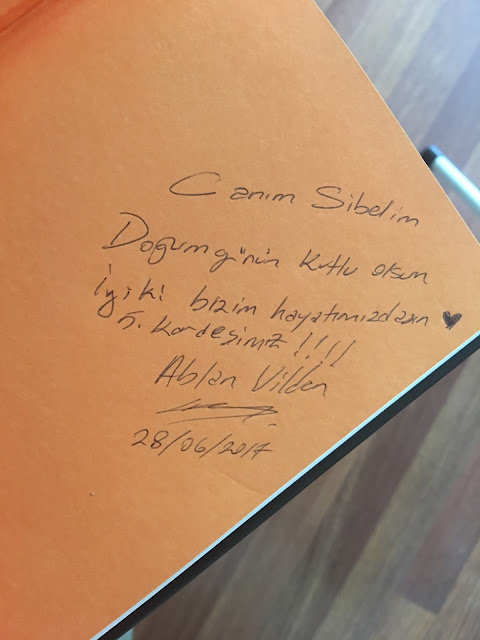 Canım Sibelim
Doğum günün kutlu olsun
İyiki bizim hayatımızdasın ♥
5. kardeşimiz !!!!
Ablan Vildan
28/06/2017